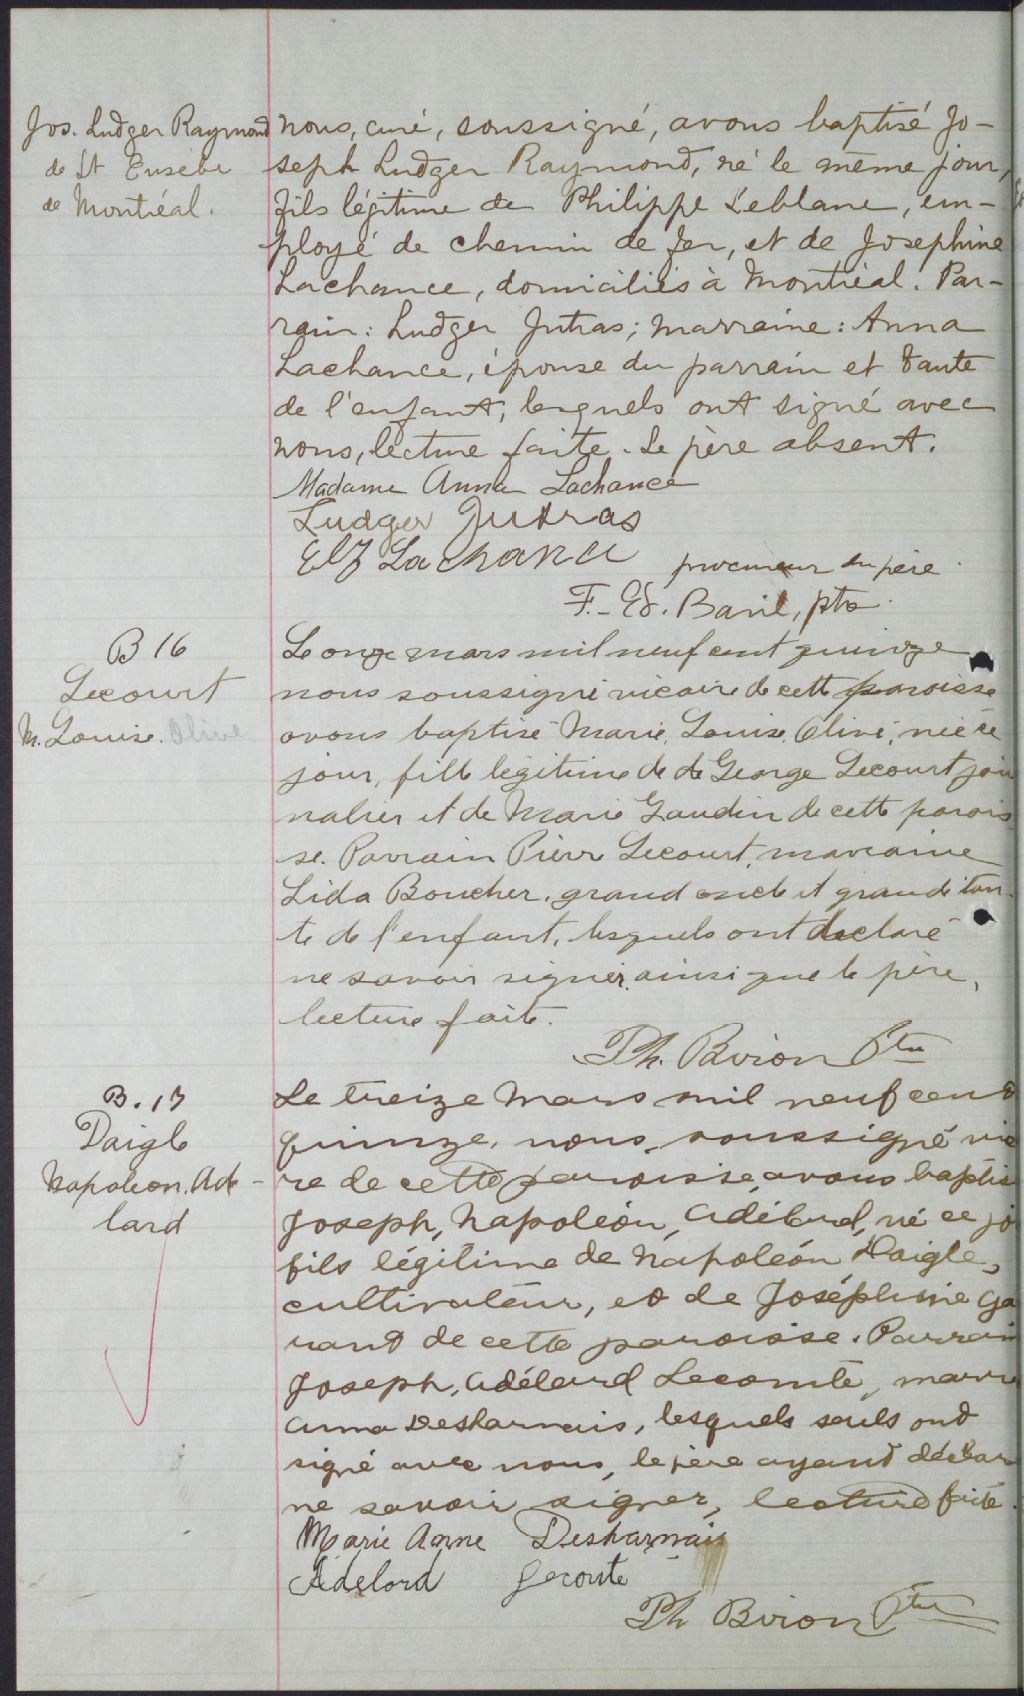 Jos. Ludger Raymond
de St Eusèbe
de Montréal.
nous, curé, soussigné, avons baptisé Jo-
seph Ludger Raymond, né le même jour,
fils légitime de Philippe Leblanc, em-
ployé de chemin de fer, et de Josephine
Lachance, domiciliés à Montréal. Par-
rain: Ludger Jutras; marraine: Anna
Lachance, épouse du parrain et tante
de l'enfant, lesquels ont signé avec
nous, lecture faite. Le père absent.
Madame Anna Lachance
Ludger Jutras
Elz Lachance procureur du père.
F.-Ed. Baril, ptre.
B 16
Lecourt
M. Louise. Olive
Le onze mars mil neuf cent quinze
nous soussigné vicaire de cette paroisse
avons baptisé Marie, Louise, Olive, née ce
jour, fille légitime de de George Lecourt jour
nalier et de Marie Gaudin de cette parois-
se. Parrain Pierre Lecourt, marraine
Lida Boucher, grand oncle et grande tan-
te de l'enfant, lesquels ont declaré
ne savoir signer, ainsi que le père,
lecture faite.
Ph. Brion Ptre
B. 17
Daigle
Napoléon. Adé-
lard
Le treize Mars mil neuf cent
quinze, nous, soussigné vic
re de cette paroisse, avons baptis
Joseph, Napoléon, Adélard, né ce jo
fils légitime de Napoléon Daigle,
cultivateur, et de Joséphine Ga
rant de cette paroisse. Parrain
Joseph, Adélard Lecomte, marr
Anna Desharnais, lesquels seuls ont
signé avec nous, le père ayant déclar
ne savoir signer, lecture faite.
Marie Anne Desharnais
Adelard Lecomte
Ph Brion Ptre